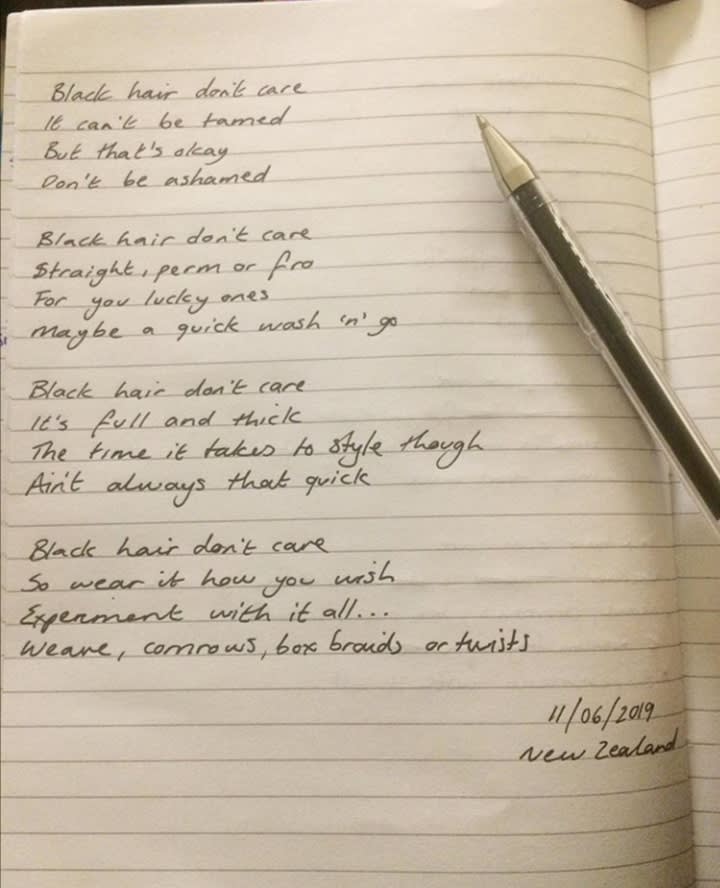 Black hair don't care
It can't be tamed
But that's okay
Don't be ashamed
Black hair don't care
Straight, perm or fro
For you lucky ones
Maybe a quick wash 'n' go
Black hair don't care
It's full and thick
The time it takes to style though
Ain't always that quick
Black hair don't care
So wear it how you wish
Experiment with it all...
Weave, cornrows, box braids or twists
11/06/2019
New Zealand